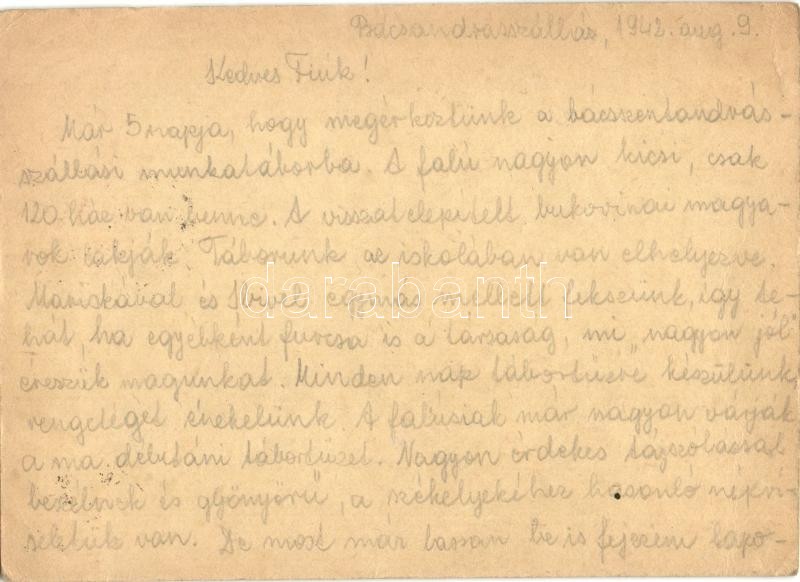 Bácsandrásszállás, 1942. aug. 9.
Kedves Fiúk!
Már 5 napja, hogy megérkeztünk a bácszentandrás-
szállási munkatáborba. A falu nagyon kicsi, csak
120 ház van benne. A visszatelepített bukovinai magya-
rok lakják. Táborunk az iskolában van elhelyezve.
Mariskával és Ibivel egymás mellett fekszünk, így te-
hát, ha egyébként furcsa is a társaság, mi "nagyon jól"
érezzük magunkat. Minden nap tábortűzre készülünk,
rengeteget énekelünk. A falusiak már nagyon várják
a ma délutáni tábortüzet. Nagyon érdekes tájszólással
beszélnek és gyönyörű, a székelyekéhez hasonló népvi-
seletük van. De most már lassan be is fejezem lapo-
darabanth